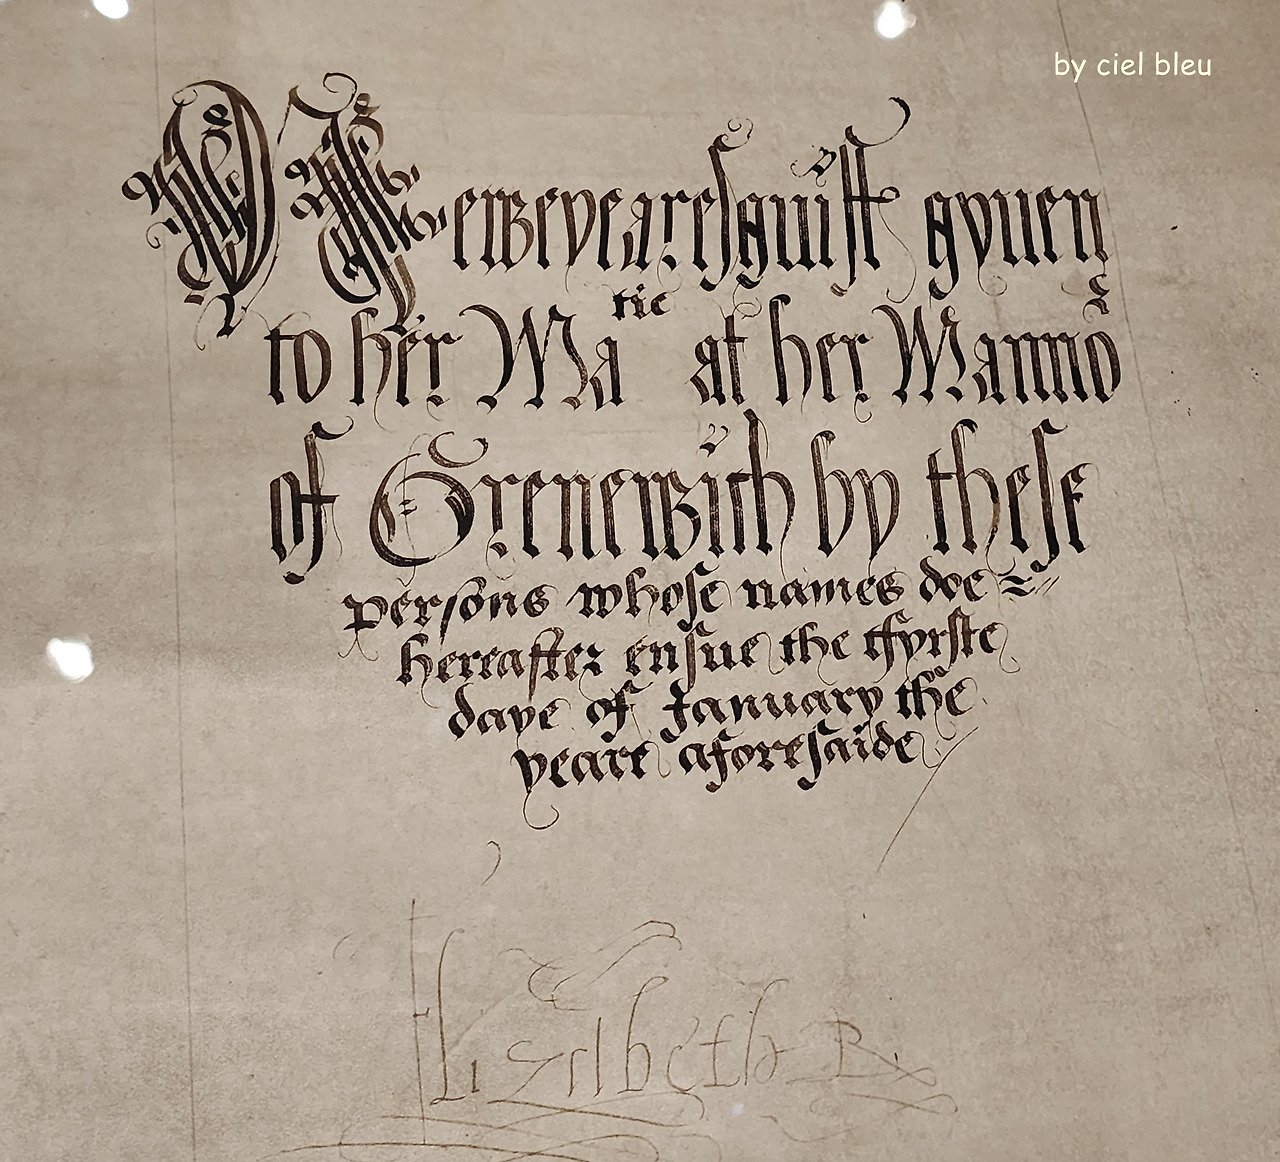 by ciel bleu
Neweyearesguift gyuen
to her Matie at her Manno
of Grenewich by these
persons whose names doe
hereafter ensue the ffyrste
daye of January the
yeare aforesaide
Elizabeth R